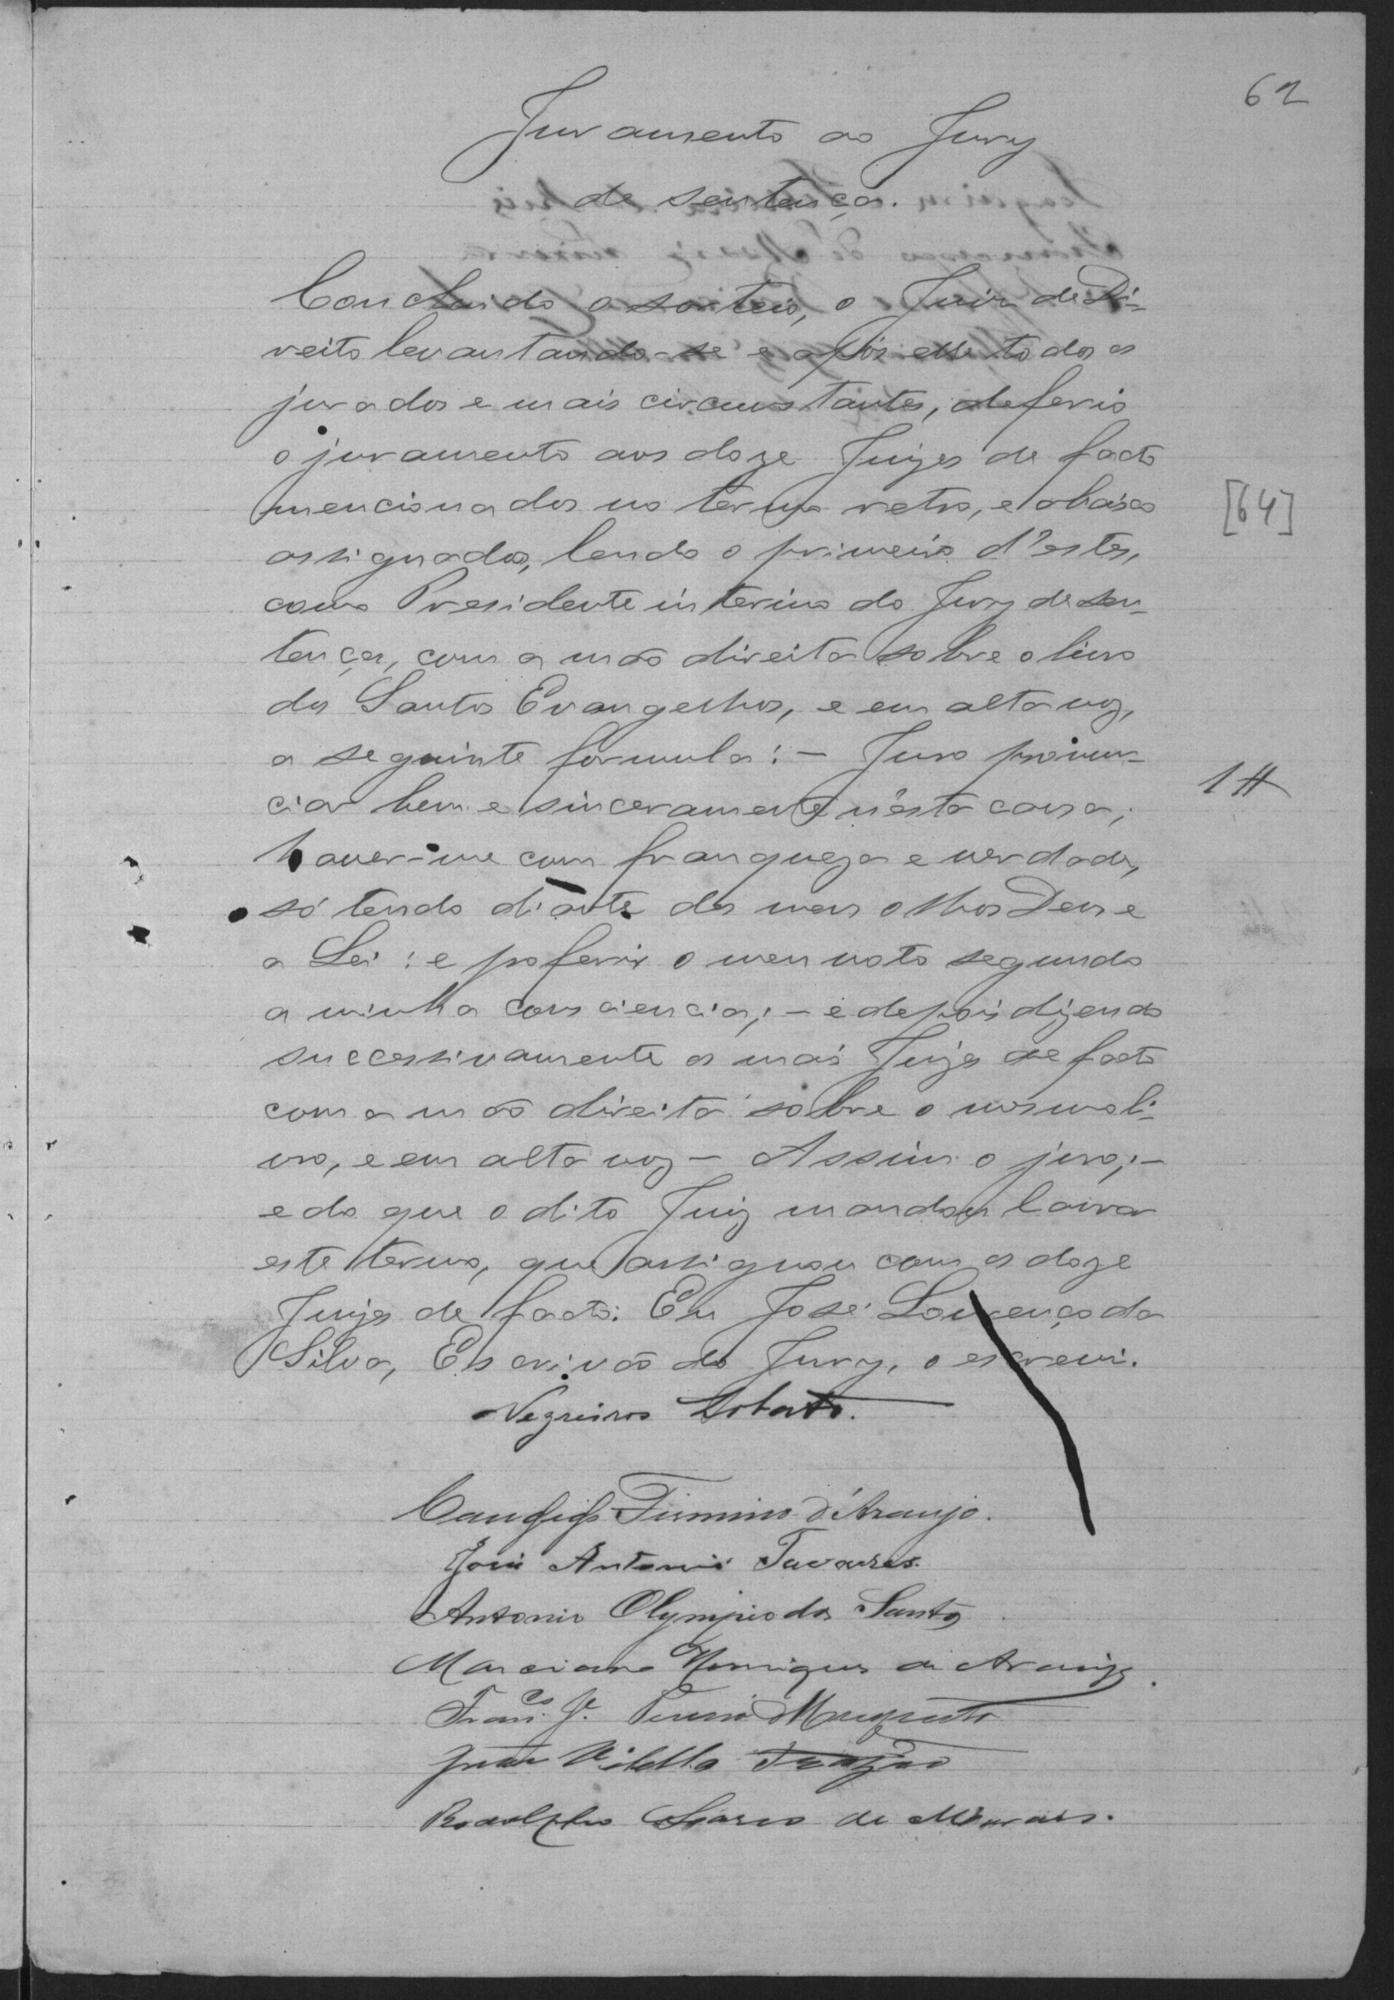 62
Juramento ao Jury
de sentença.
Concluido o sorteio, o Juiz de Di-
reito levantando-se e após elle todos os
jurados e mais circumstantes, deferio
o juramento aos doze Juizes de facto
mencionados no termo retro, e abaixo
assignados, lendo o primeiro d'estes,
como Presidente interino do Jury de sen-
tença, com a mão direita sobre o livro
dos Santos Evangelhos, e em alta voz,
a seguinte formula: - Juro pronun-
ciar bem e sinceramente n'esta causa;
haver-me com franqueza e verdade,
só tendo diante dos meus olhos Deus e
a Lei: e proferir o meu voto segundo
a minha consciencia; - e depois dizendo
successivamente os mais Juizes de facto
com a mão direita sobre o mesmo li-
vro, e em alta voz - Assim o juro; -
e do que o dito Juiz mandou lavrar
este termo, que assignou com os doze
Juizes de facto. Eu José Lourenço da
Silva, Escrivão do Jury, o escrevi.
[64]
1#
Negreiros Lobato.
Candido Firmino d'Araujo.
José Antonio Tavares.
Antonio Olympio dos Santos
Marciano Henriques de Araujo.
Fran.co J.e
João Villella Frazão
Rodolpho de Moraes.